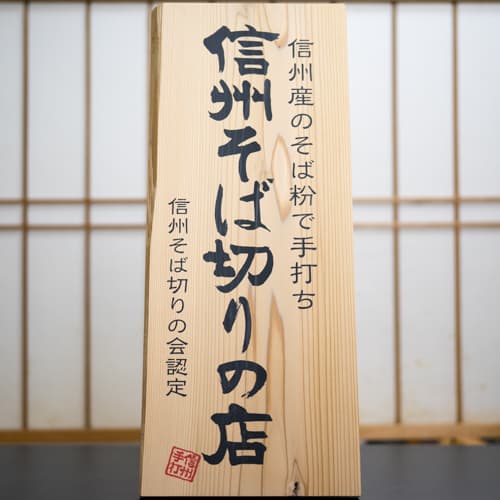 信州産のそば粉で手打ち
信州そば切りの店
信州そば切りの会認定
信州
手打